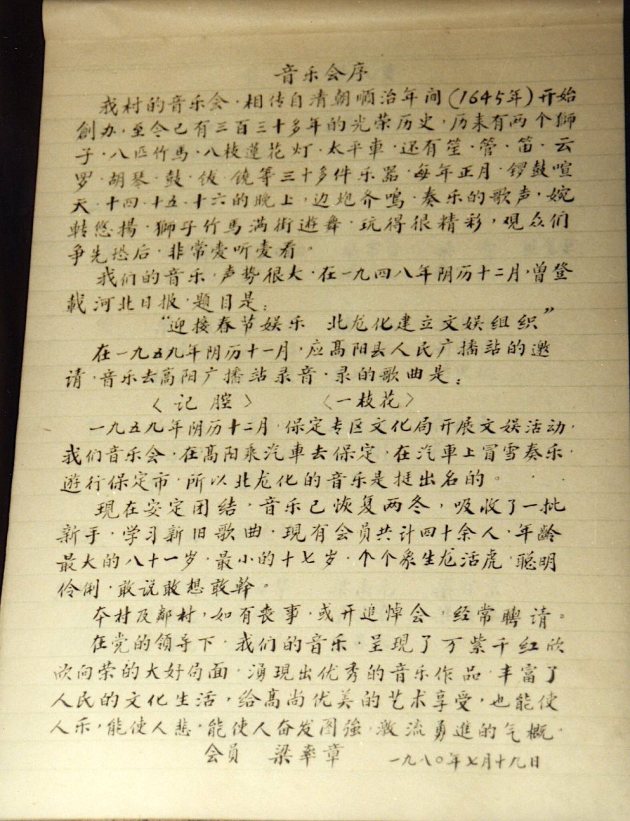 音乐会序
我村的音乐会·相传自清朝顺治年间(1645年)开始
創办,至今已有三百三十多年的光荣历史,历来有两个獅
子·八匹竹馬·八枝莲花灯·太平車·还有笙·管·笛·云
罗·胡琴·鼓·钹·铙等三十多件乐器·每年正月·锣鼓喧
天·十四·十五·十六的晚上,边炮齐鸣·奏乐的歌声,婉
转悠揚·獅子竹馬满街遊舞·玩得很精彩,观众们
争先恐后·非常爱听爱看。
我们的音乐,声势很大·在一九四八年阴历十二月,曾登
載河北日报·题目是:
“迎接春节娱乐 北龙化建立文娱组织”
在一九五九年阴历十一月·应髙阳县人民广播站的邀
请·音乐去髙阳广播站录音·录的歌曲是:
〈记腔〉 〈一枝花〉
一九五九年阴历十二月·保定专区文化局开展文娱活动·
我们音乐会·在髙阳乘汽車去保定·在汽車上冒雪奏乐·
遊行保定市,所以北龙化的音乐是挺出名的。
現在安定团结,音乐已恢复两冬,吸收了一批
新手,学习新旧歌曲·現有会员共计四十余人·年龄
最大的八十一岁·最小的十七岁·个个象生龙活虎·聪明
伶俐·敢说敢想敢幹。
本村及邻村,如有丧事·或开追悼会,经常聘请。
在党的领导下·我们的音乐·呈現了万紫千红欣
欣向荣的大好局面·湧現出优秀的音乐作品·丰富了
人民的文化生活,给髙尚优美的艺术享受,也能使
人乐,能使人悲,能使人奋发图強·激流勇進的气概·
会员 梁奉章 一九八〇年七月十九日